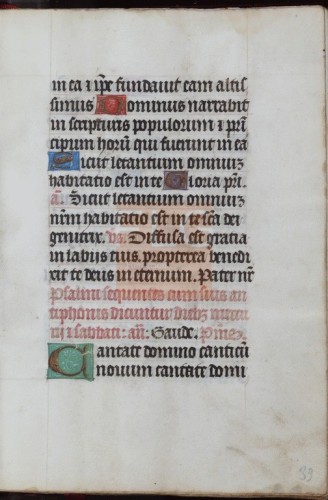 in ea ⁊ ip̄e fundauit eam altis
simus Dominus narrabit
in scripturis populorum ⁊ prin
cipum horū qui fuerunt in ea
Sicut letantium omniū
habitatio est in te Gloria pr̄i.
añ. Sicut letantium omniū
nr̄m habitatio est in te scā dei
genitrix. vs. Diffusa est gratia
in labijs tuis. propterea benedi
xit te deus in eternum. Pater nr̄
Psalmi sequentes cum suis an
tiphonis dicuntur diebus
iij ⁊ sabbati: añ: Gaude.
Cantate domino canticū
nouum cantate domi
39